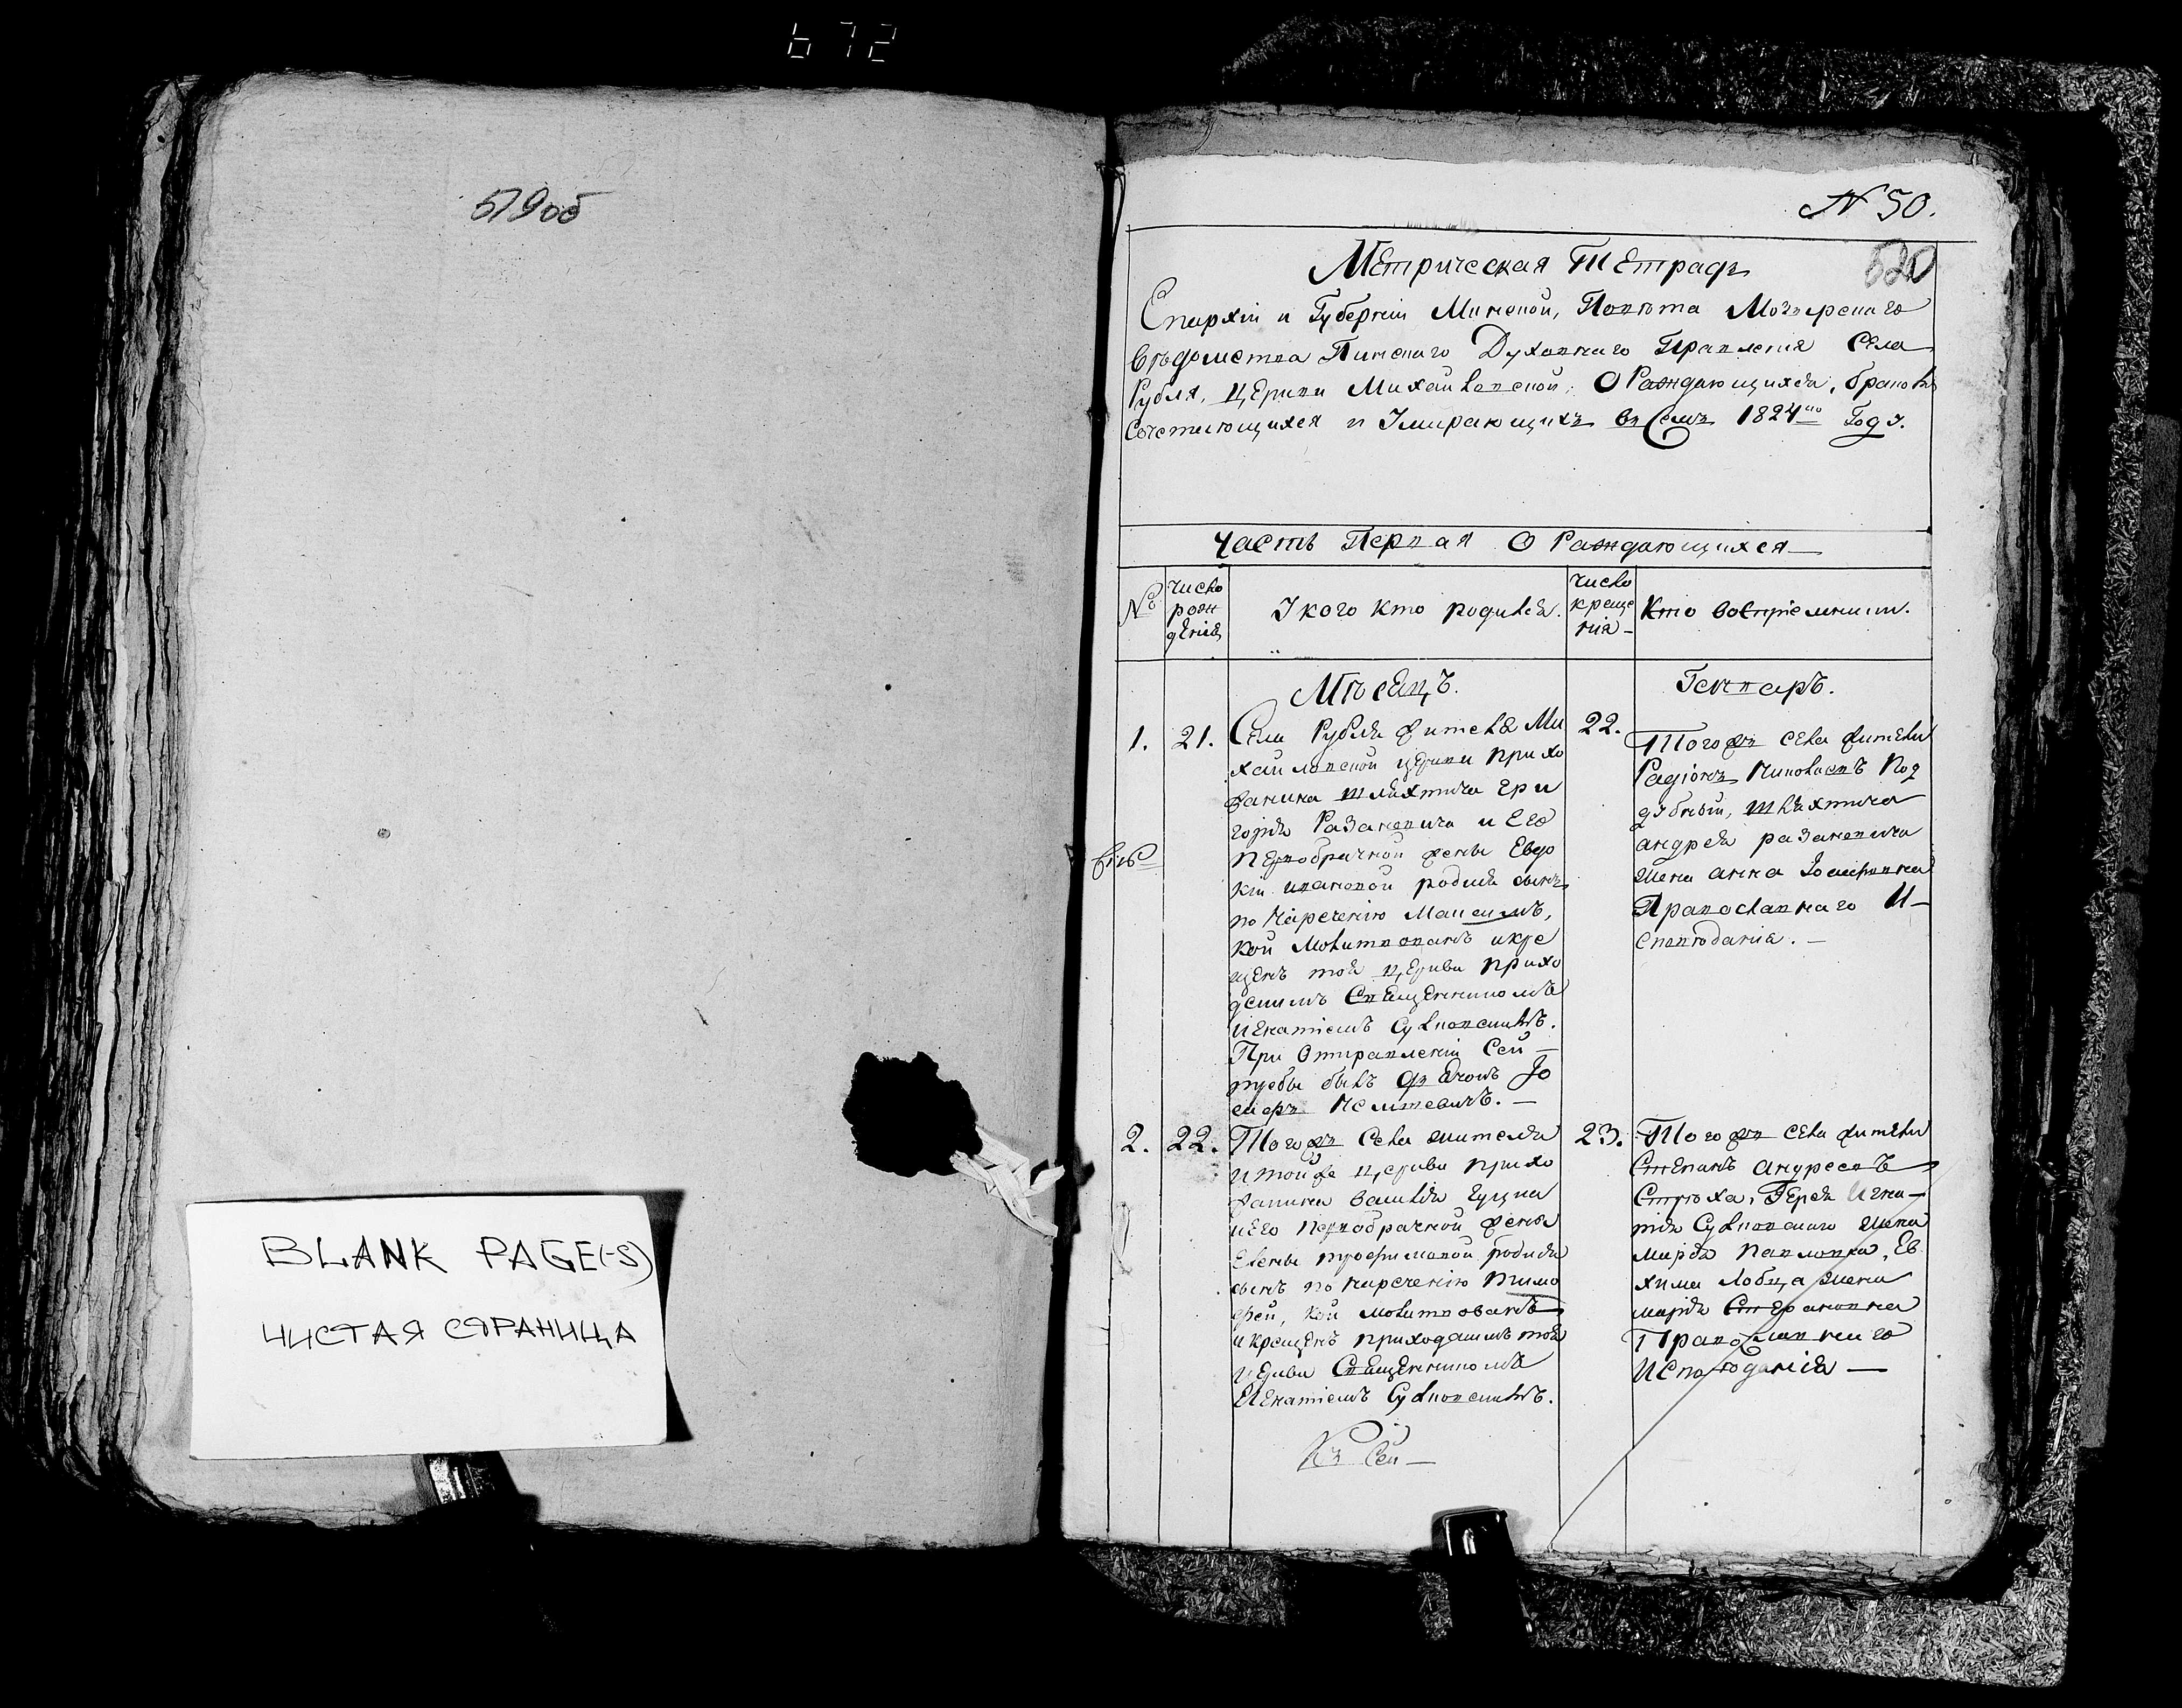 672
519об
BLANK PAGE(-S)
ЧИСТАЯ СТРАНИЦА
N 50.
520
Метрическая Тетрадь
Епархіи и Губерніи Минской, Повѣта Мозырскаго
вѣдомства Пинскаго Духовнаго Правленія Села
Рубля, Церкви Михайловской, О Раждающихся, бракомъ
Сочетающихся и Умирающихъ въ Семъ 1824мъ Году.
Часть Первая О Раждающихся
№
Число рождения
У кого кто родился.
Число крещения
Кто воспріемники.
Мѣсяцъ.
Генваръ.
1. 21.
Села Рубля жителя Ми
хайловской церкви прихо
жанина шляхтича Гри
горія Разановича и Его
первобрачной жены Евдо
кіи родися сынъ
по нареченію Максимъ,
кой молитвованъ и кре
щенъ тоя церкви прихо
дскимъ Священникомъ
Игнатіемъ
При отправленіи Сей
требы былъ дячокъ Іо
сифъ
22.
Тогожъ села жители
Радіонъ Николаевъ Под
дубный, шляхтича
андрея разановича
жена анна Іосифовна
Православнаго И-
споведания.
2. 22.
Тогожъ Села жителя
и тойже церкви прихо
жанина Василія
и Его первобрачной жены
Елены трофимовой родися
сынъ по нареченію тимо
фей, кой молитвованъ
и крещенъ приходскимъ тоя
церкви Священникомъ
Игнатіемъ
Къ Сей
23.
Тогожъ села жители
Степанъ андреевъ
Стрѣха, Іерея Игна-
тія жена
марія Павловна, Ев
хима жена
марія
Православнаго
Исповѣданія